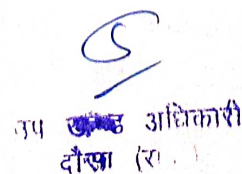 उप खण्ड अधिकारी
दौसा (रा